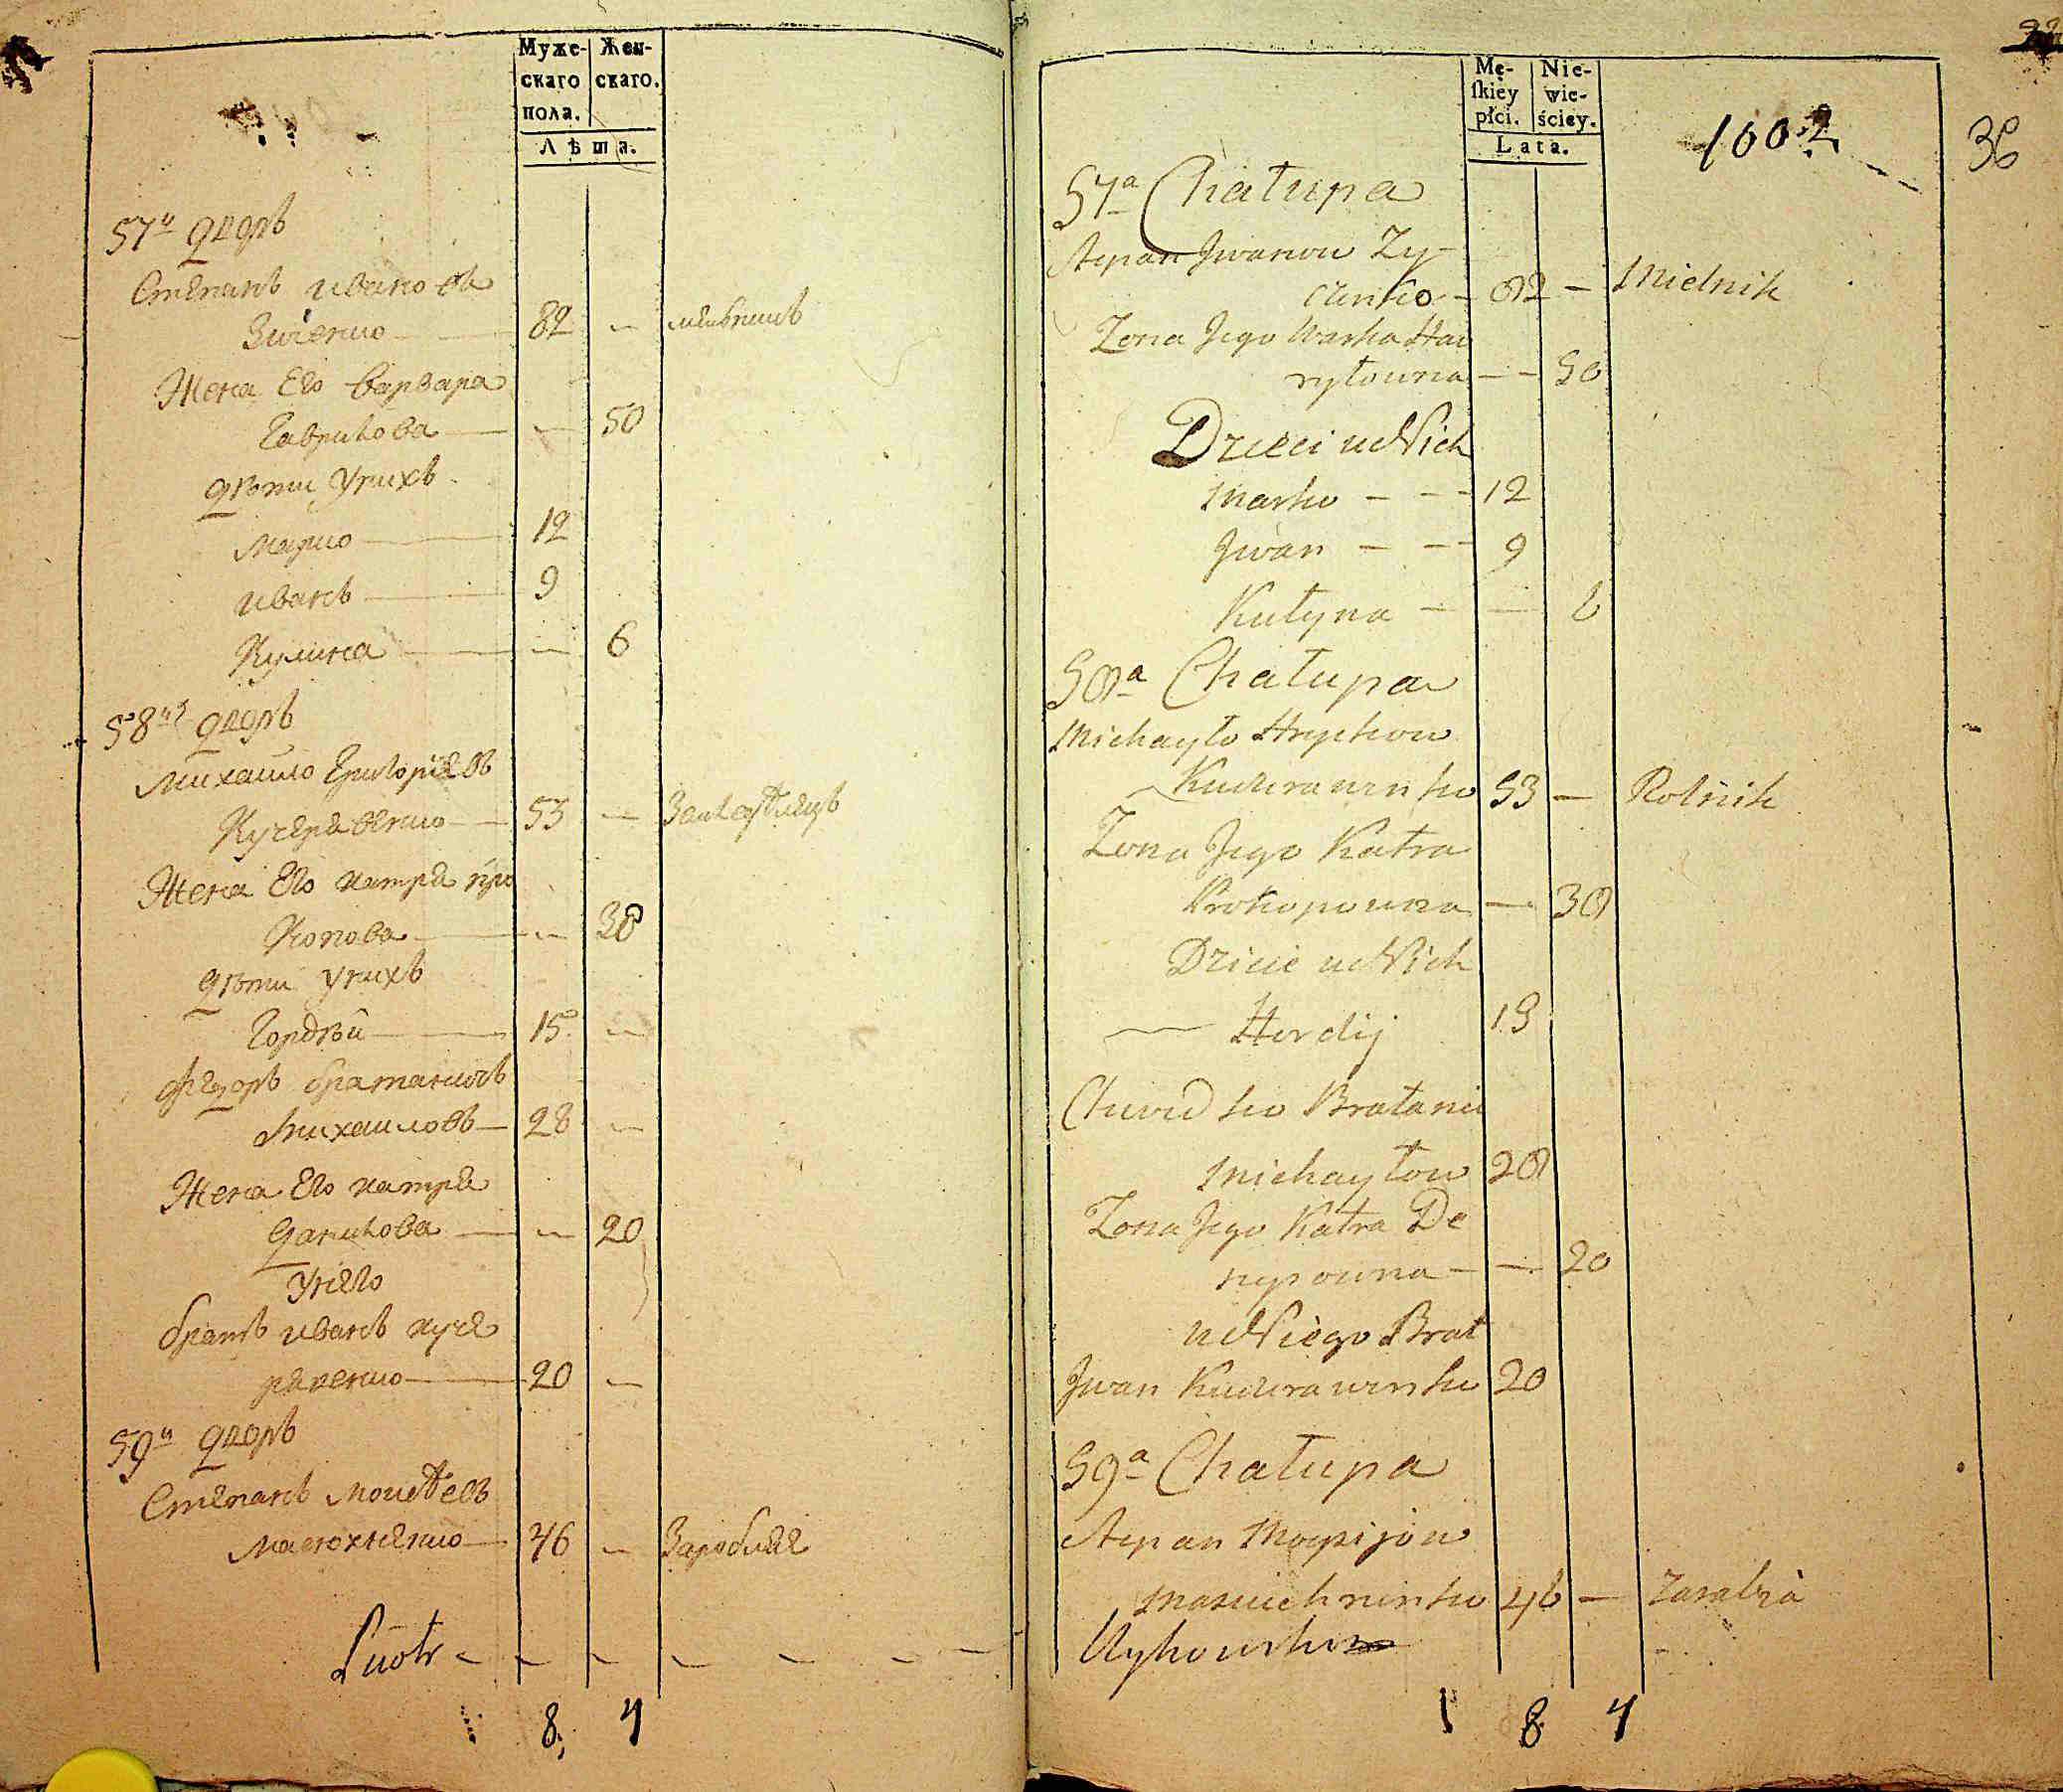 Муже-
скаго
пола.
Жен-
скаго.
Лѣта.
57й дворъ
Степанъ ивановъ
Зиченко 82 — мелникъ
Жена Его Варвара
Гаврилова — 50
дѣти у нихъ
марко 12
иванъ 9
Кулина — 6
58й дворъ
михаило Григориевъ
Кучеравенко 53 —
Жена Его катра про
копова — 38
дѣти у нихъ
Гордѣй 15 —
федоръ братаничъ
михаиловъ 28 —
Жена Его катра
данилова — 20
у него
братъ иванъ куче
равенко 20 —
59й дворъ
Степанъ
46 —
Piotr
8 4
Mę-
skiey
płci.
Nie-
wie-
ściey.
Lata.
1002
36
57a Chałupa
Stepan Iwanow Zy-
czenko 82 — Mielnik
Zona Jego Warka Haw
ryłowna — — 50
Dzieci u Nich
Marko — — 12
Jwan — — 9
Kułyna — — 6
58a Chałupa
Michayło Hryhow
Kuczerawenko 53 — Rolnik
Zona Jego Katra
Prokopowna — 38
Dzieci u Nich
Hordij 15
Chwedko Bratanicz
Michayłow 28
Zona Jego Katra De
— 20
u Niego Brat
Jwan Kuczerawenko 20
59a Chałupa
Stepan Moysijow
46 — Zarabia
Wykowsky
1 8 4